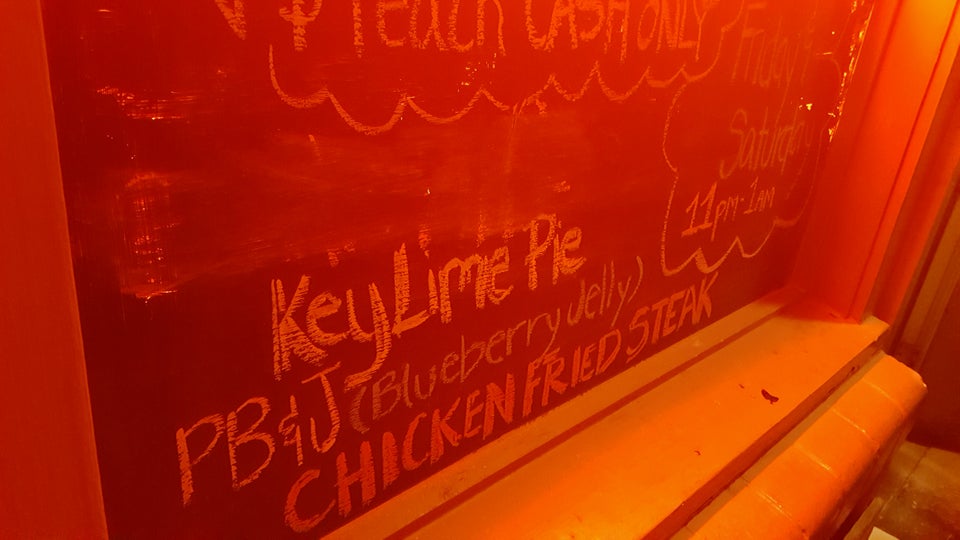 $ each CASH ONLY
Friday &
Saturday
11pm-1am
Key Lime Pie
PB&J (Blueberry Jelly)
CHICKEN FRIED STEAK